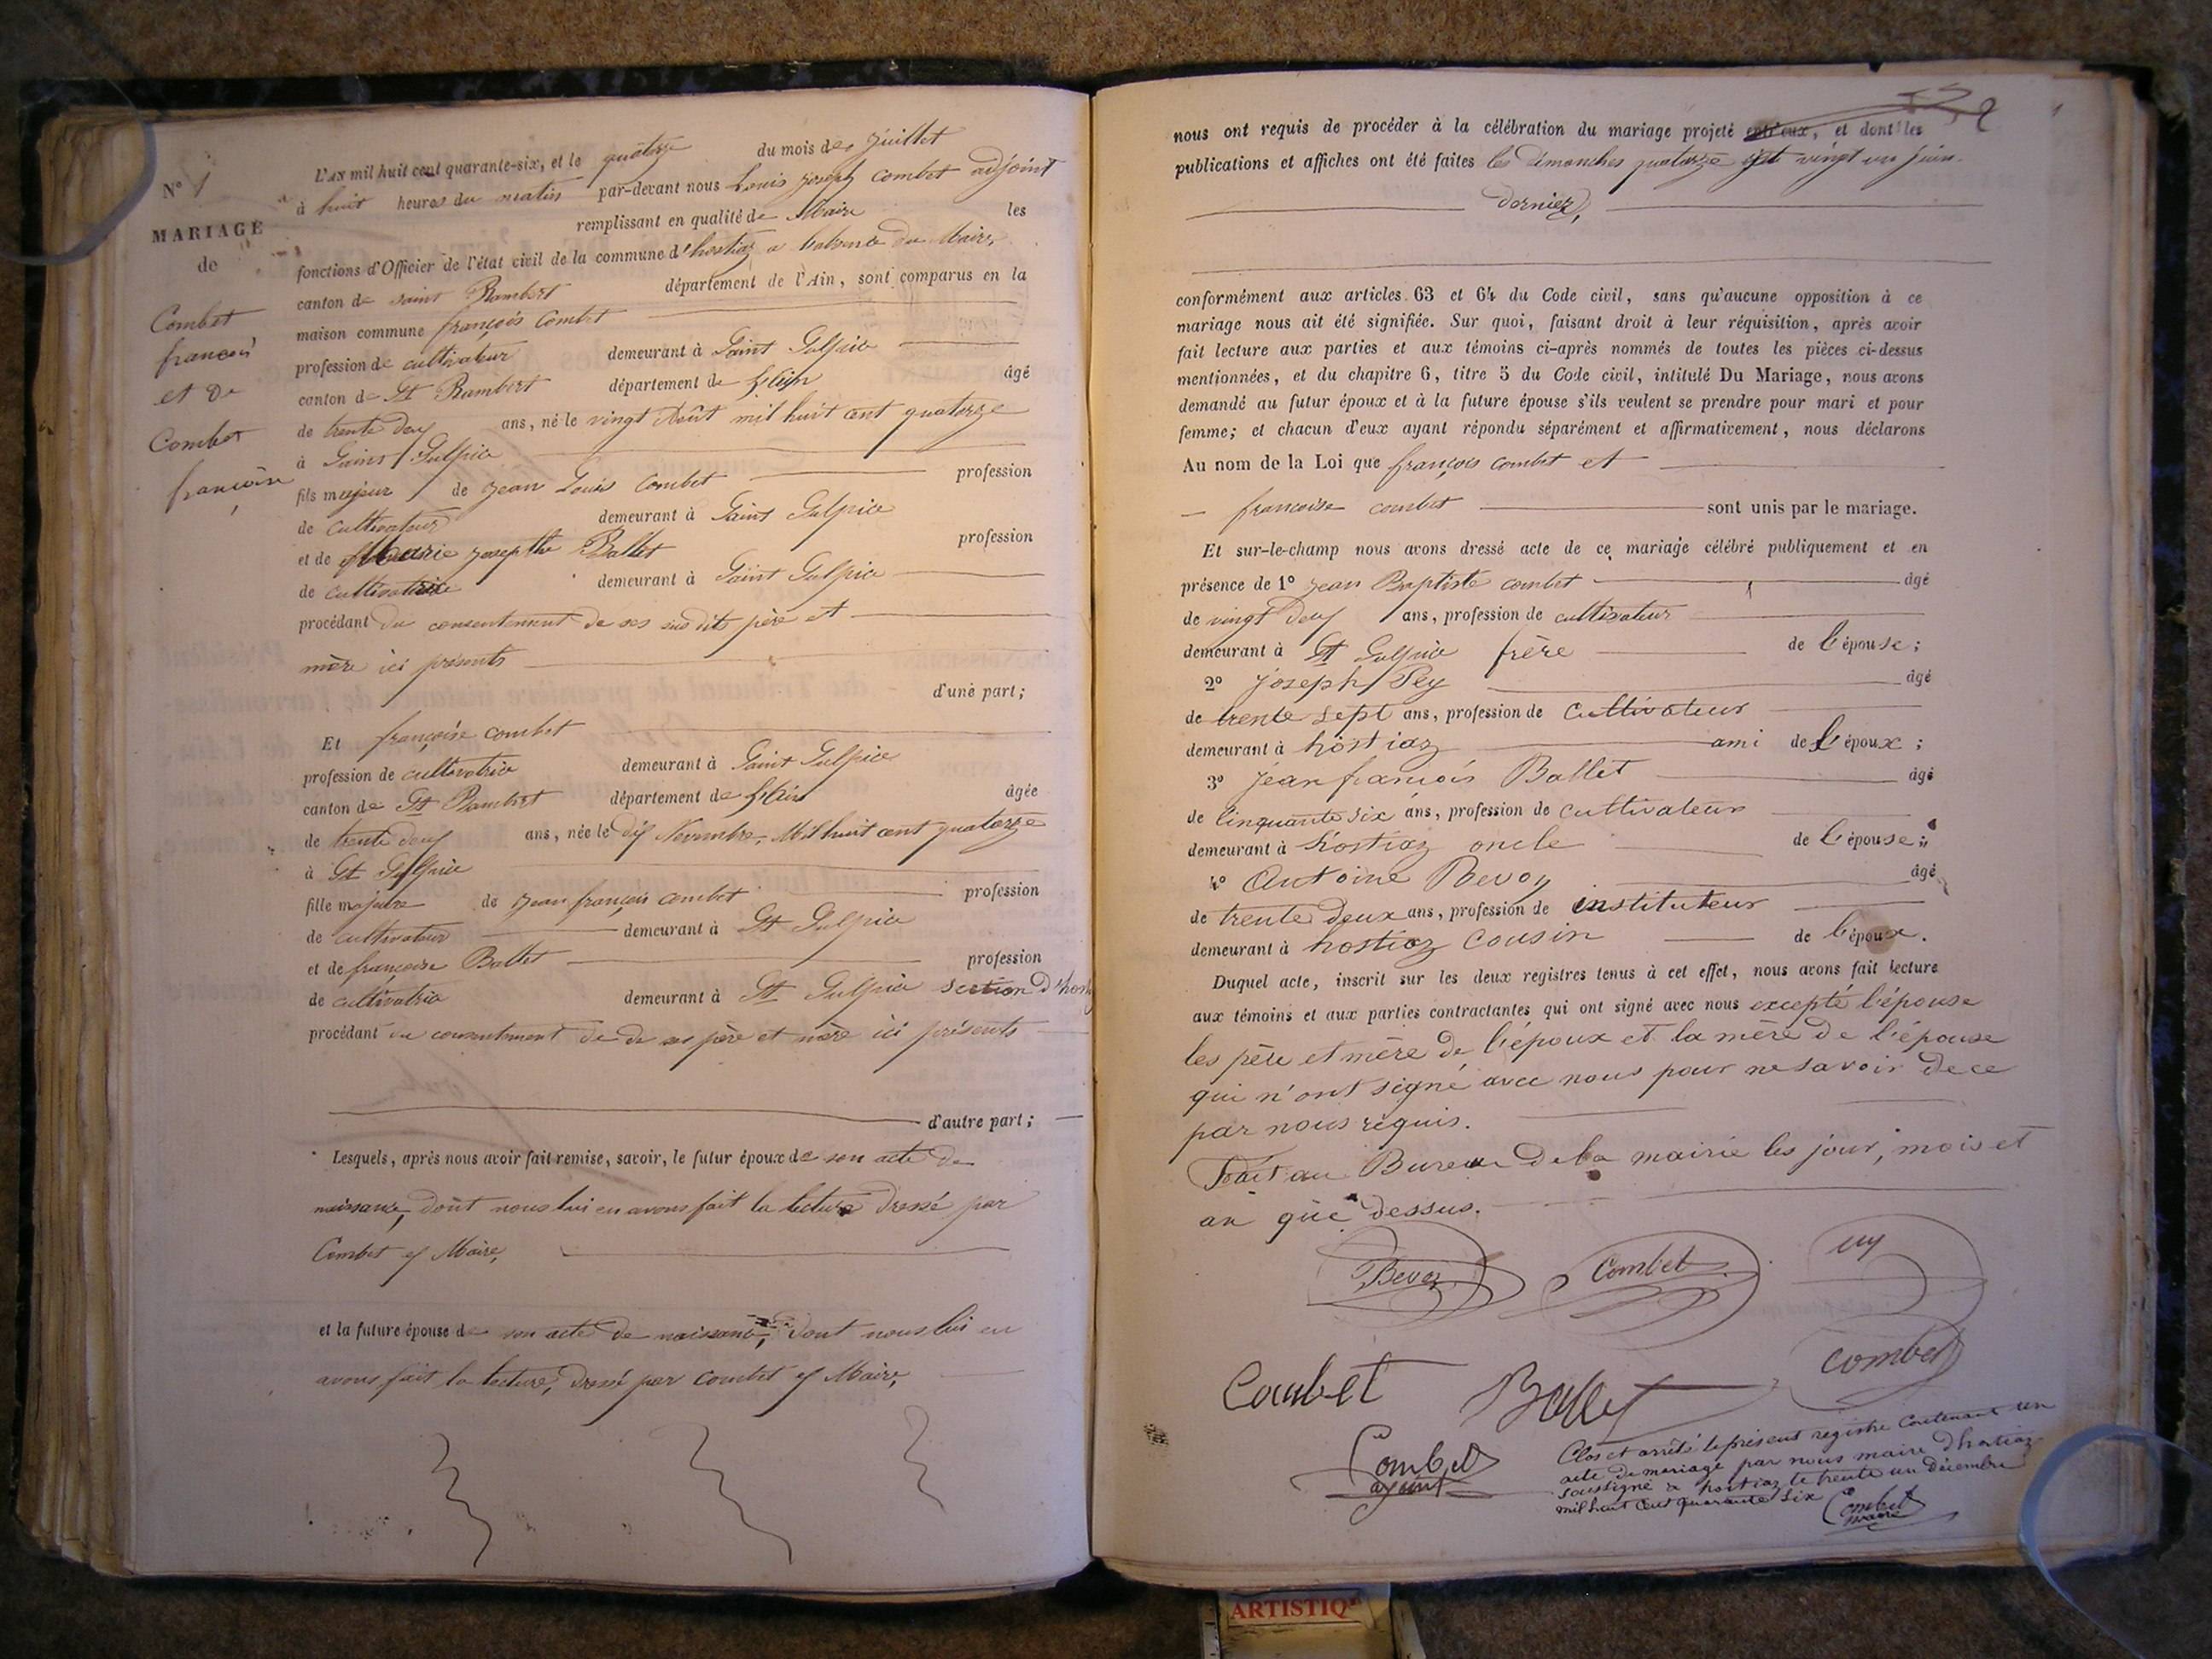 N° 1
MARIAGE
de
Combet
francois
et de
Combet
françoise
L'AN mil huit cent quarante-six, et le quatorze du mois de juillet
à huit heures du matin par-devant nous Louis joseph Combet adjoint
remplissant en qualité de Maire les
fonctions d'Officier de l'état civil de la commune d'hostiaz a l'absence du Maire,
canton de saint Rambert département de l'Ain, sont comparus en la
maison commune françois Combet
profession de cultivateur demeurant à Saint Sulpice
canton de St Rambert département de l'ain âgé
de trente deux ans, né le vingt Août mil huit cent quatorze
à Saint Sulpice
fils majeur de jean Louis Combet profession
de cultivateur demeurant à Saint Sulpice
et de Marie josephte Ballet profession
de cultivatrice demeurant à Saint Sulpice
procédant du consentement de ses sus dits père et
mère ici présents
d'une part;
Et françoise combet
profession de cultivatrice demeurant à Saint Sulpice
canton de St Rambert département de l'Ain âgée
de trente deux ans, née le dix Novembre, Mil huit cent quatorze
à St Sulpice
fille majeure de jean françois combet profession
de cultivateur demeurant à St Sulpice
et de françoise Ballet profession
de cultivatrice demeurant à St Sulpice section d'host
procédant du consentement de de ses père et mère ici présents
d'autre part;
Lesquels, après nous avoir fait remise, savoir, le futur époux de son acte de
naissance, dont nous lui en avons fait la lecture dressé par
Combet Maire,
et la future épouse de son acte de naissance, dont nous lui en
avons fait la lecture, dressé par combet Maire,
nous ont requis de procéder à la célébration du mariage projeté entr'eux, et dont les
publications et affiches ont été faites les dimanches quatorze et vingt un juin
dernier,
conformément aux articles 63 et 64 du Code civil, sans qu'aucune opposition à ce
mariage nous ait été signifiée. Sur quoi, faisant droit à leur réquisition, après avoir
fait lecture aux parties et aux témoins ci-après nommés de toutes les pièces ci-dessus
mentionnées, et du chapitre 6, titre 5 du Code civil, intitulé Du Mariage, nous avons
demandé au futur époux et à la future épouse s'ils veulent se prendre pour mari et pour
femme; et chacun d'eux ayant répondu séparément et affirmativement, nous déclarons
Au nom de la Loi que françois combet et
francoise combet sont unis par le mariage.
Et sur-le-champ nous avons dressé acte de ce mariage célébré publiquement et en
présence de 1° jean Baptiste combet âgé
de vingt deux ans, profession de cultivateur
demeurant à St Sulpice frère de l'épouse;
2° joseph Pey âgé
de trente sept ans, profession de cultivateur
demeurant à hostiaz ami de l'époux;
3° jean françois Ballet âgé
de Cinquante six ans, profession de cultivateur
demeurant à hostiaz oncle de l'épouse;
4° Antoine Bevoz âgé
de trente deux ans, profession de instituteur
demeurant à hostiaz cousin de l'époux.
Duquel acte, inscrit sur les deux registres tenus à cet effet, nous avons fait lecture
aux témoins et aux parties contractantes qui ont signé avec nous excepté l'épouse
les père et mère de l'époux et la mère de l'épouse
qui n'ont signé avec nous pour ne savoir de ce
par nous requis.
Fait au Bureau de la mairie les jour, mois et
an que dessus.
Bevoz Combet
combet
Combet Ballet
Combet
adjoint
Clos et arrêté le présent registre Contenant un
acte de mariage par nous maire d'hostiaz
soussigné a hostiaz le trente un décembre
mil huit cent quarante six Combet
maire
ARTISTIQ